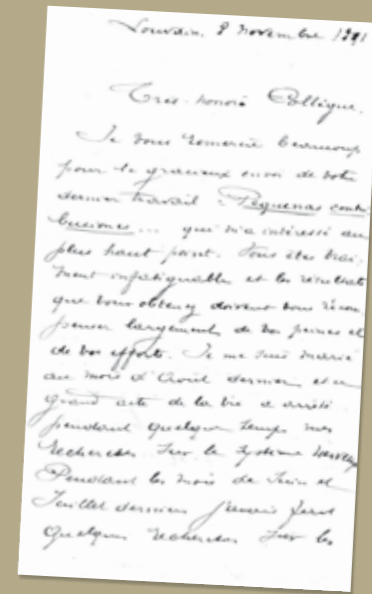 Louvain, 8 novembre 1891
Très honoré Collègue.
Je vous remercie beaucoup
pour le gracieux envoi de votre
dernier travail "Pequenas contri
buciones... qui m'a intéressé au
plus haut point. Vous êtes vrai-
ment infatigable et les résultats
que vous obtenez doivent vous récom
penser largement de vos peines et
de vos efforts. Je me suis marié
au mois d'Août dernier et ce
grand acte de la vie a arrêté
pendant quelque temps mes
recherches sur le système nerveux
Pendant les mois de Juin et
Juillet derniers j'avais fait
quelques recherches sur les